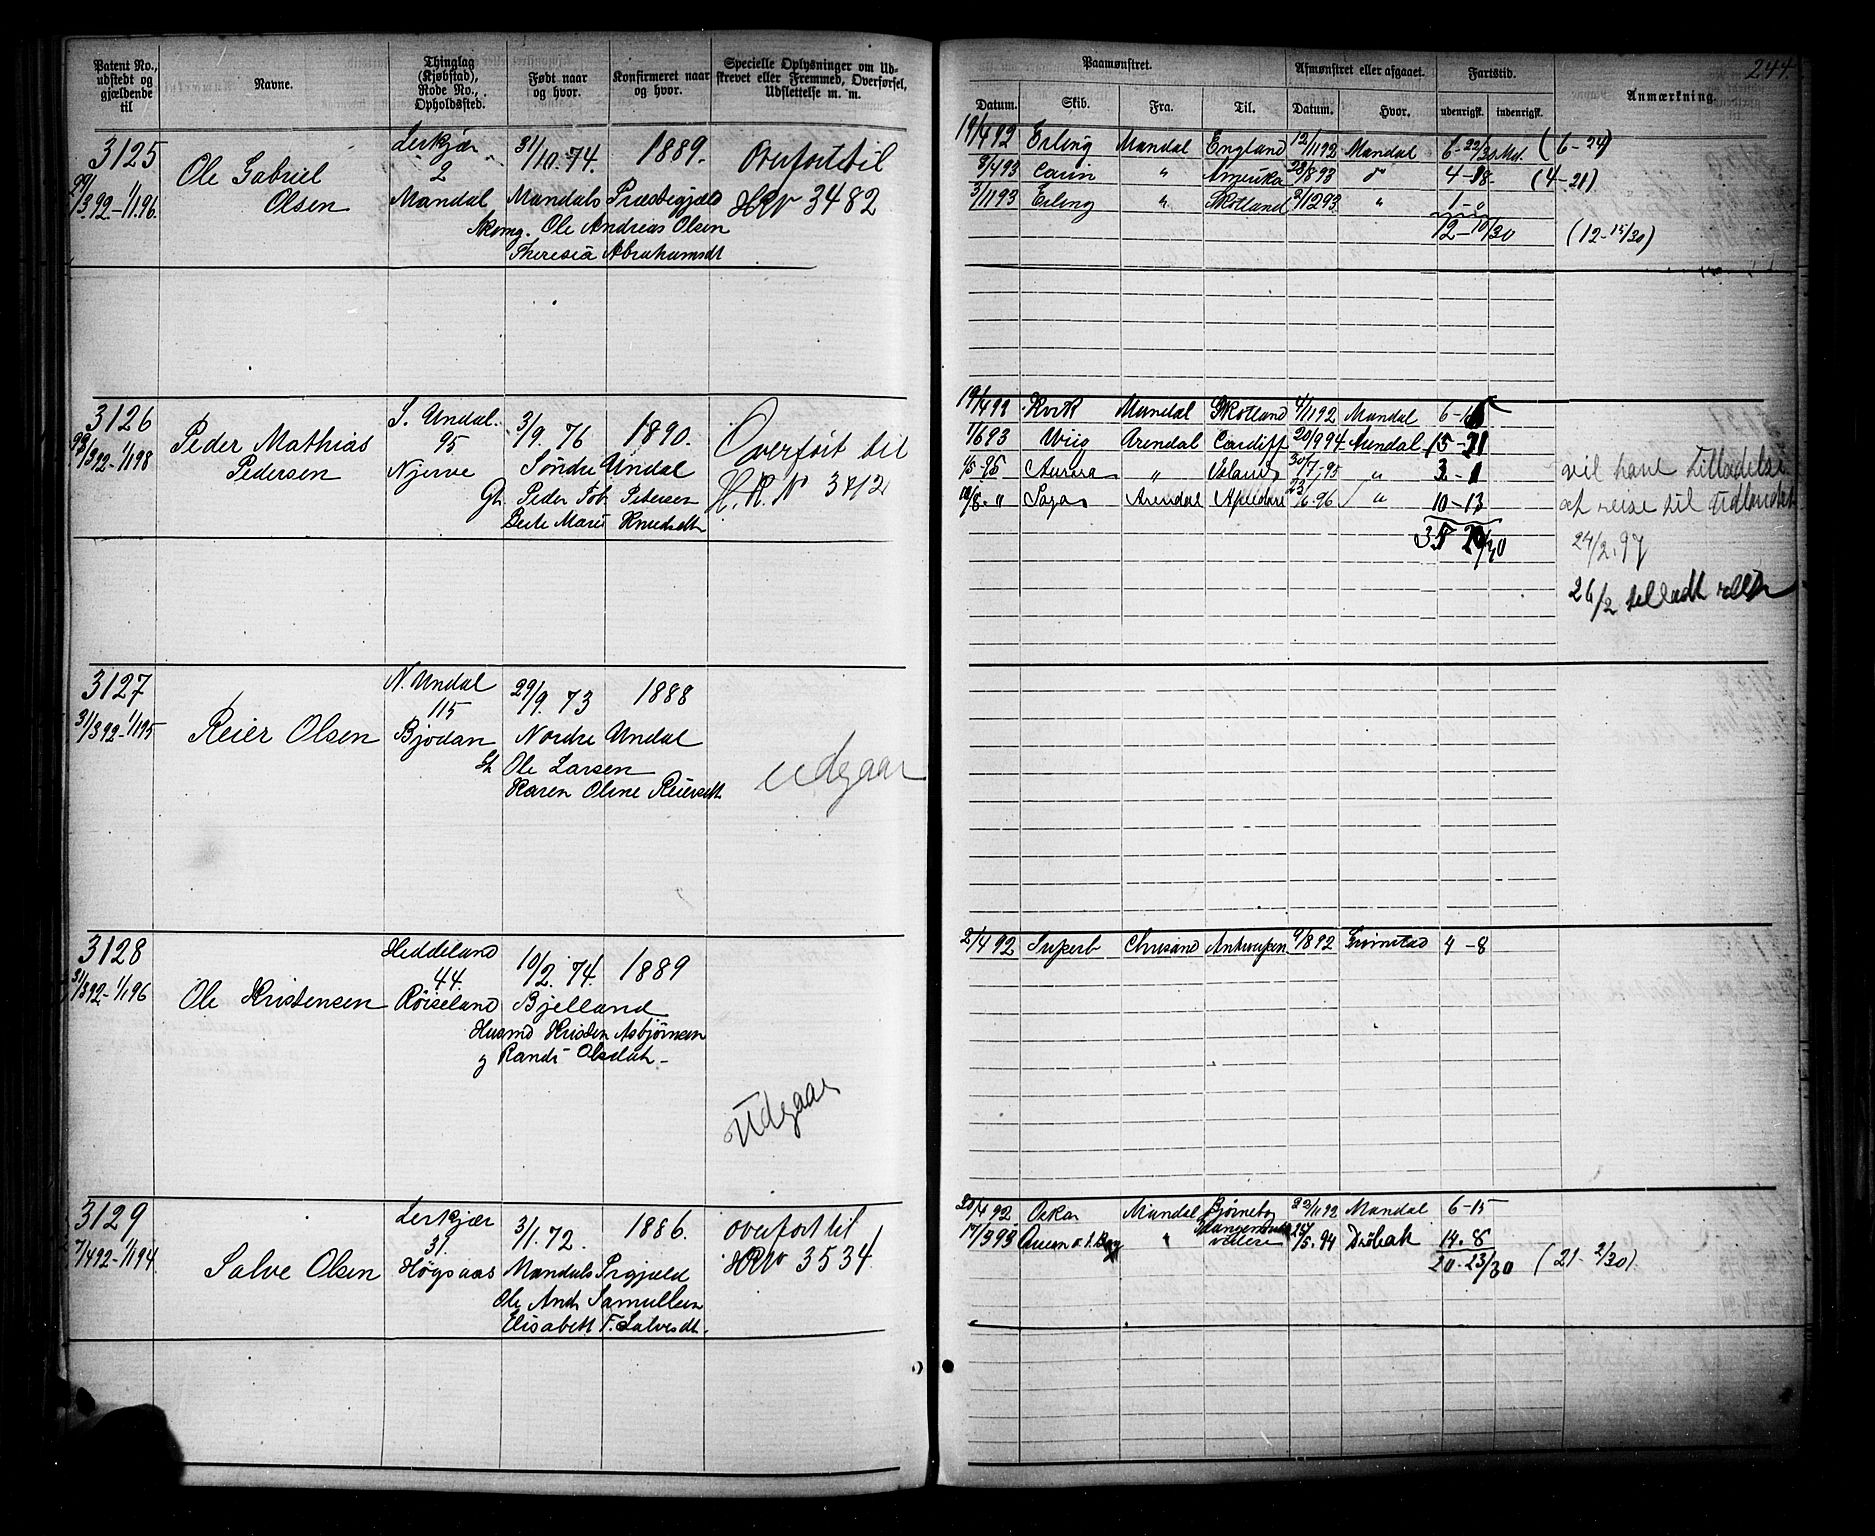 244.
Patent No., udstedt og gjældende til
Navne.
Thinglag (Kjøbstad), Rode No., Opholdssted.
Født naar og hvor.
Konfirmeret naar og hvor.
Specielle Oplysninger om Udskrevet eller Fremmed, Overførsel, Udslettelse m. m.
Paamønstret.
Afmønstret eller afgaaet.
Fartstid.
Anmærkning.
Datum. Skib. Fra. Til. Datum. Hvor. udenrigsk. indenrigsk.
3125
29/3 92-1/1 96.
Ole Gabriel
Olsen
2
Mandal
31/10. 74.
1889.
Mandals Præstegjæld
Ole Andreas Olsen
Theresia Abrahamsdt
Overført til
HRN 3482
19/4 92 Erling Mandal England 12/11 92 Mandal 6-22/30 Md. (6-24)
8/4 93 Carin " Amerika 28/8 93 do 4-18. (4-21)
3/11 93 Erling " Skotland 2/12 93 " 1-0
12-10/30 (12-15/30)
3126
29/3 92-1/1 98
Peder Mathias
Pedersen
S. Undal.
95
Njerve
3/9. 76
1890.
Søndre Undal
Gb. Peder Tob. Petersen
Berte Marie Knudsdtr
Overført til
H.R.N 3412
19/4 92 Kvik Mandal Skotland 4/11 92 Mandal
1/6 93 Wiig Arendal Cardiff 20/9 94 Arendal
Aurora " Island 30/7 95 "
Saga Arendal "
10-13
vil have Tilladelse
at reise til Udlandet
24/2. 97
26/2 tilladt
3127
31/3 92-1/1 95
Reier Olsen
N. Undal
115
Bjodan
29/9. 73
1888
Nordre Undal
Ole Larsen
Karen Oline Reiersdt
udgaar
3128
31/3 92-1/1 96
Ole Kristensen
Heddeland
44.
Røiseland
10/2. 74.
1889
Bjelland
Husmd Kristen Asbjørnsen
g Randi Olsdatr
Udgaar
2/4 92 Superb Chrsand Antwerpen 9/8 92 Grimstad 4-8
3129
7/4 92-1/1 94
Salve Olsen
31.
Høgsaas
3/1. 72.
1886.
Mandals Prgjæld
Ole Andr Samuelsen
Elisabeth T. Salvesdt.
overført til
HRN 3534
20/4 92 Oskar Mandal Bjørneborg 22/11 92 Mandal 6-15
17/3 93 " 24/5. 94 Drøbak 14.8
20-23/30 (21-2/30)